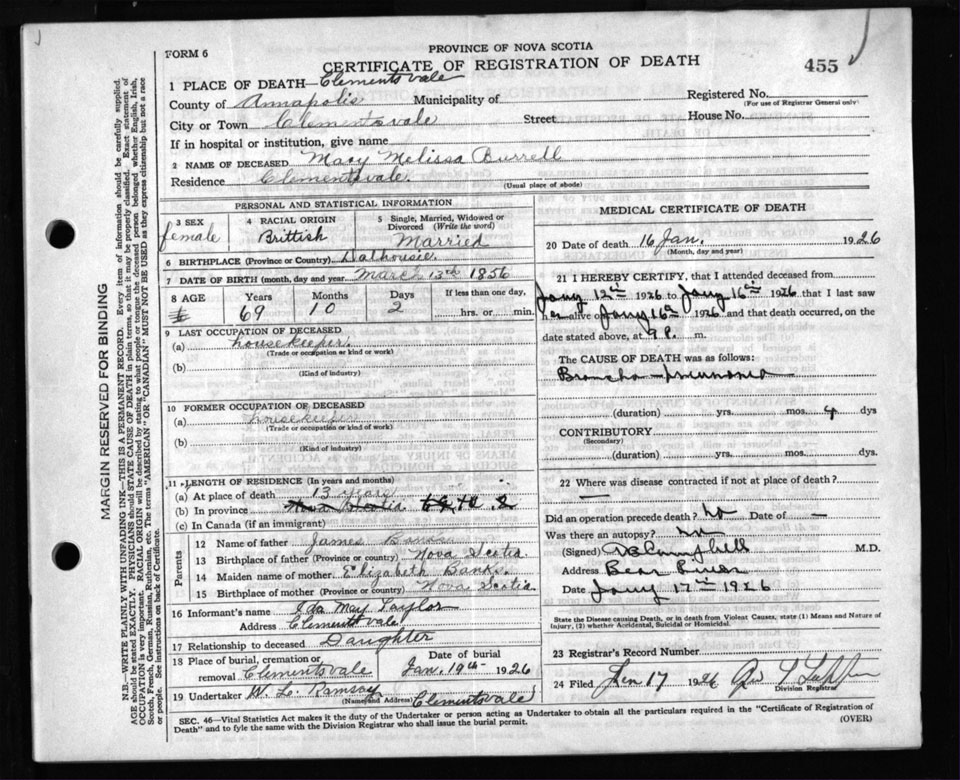 FORM 6
PROVINCE OF NOVA SCOTIA
CERTIFICATE OF REGISTRATION OF DEATH
455
1 PLACE OF DEATH Clementsvale
Registered No.
(For use of Registrar General only)
County of Annapolis Municipality of
City or Town Clementsvale Street House No.
If in hospital or institution, give name
2 NAME OF DECEASED Mary Melissa Burrell
Residence Clementsvale.
(Usual place of abode)
PERSONAL AND STATISTICAL INFORMATION
3 SEX female
4 RACIAL ORIGIN Brittish
5 Single, Married, Widowed or Divorced (Write the word) Married
6 BIRTHPLACE (Province or Country) Dalhousie.
7 DATE OF BIRTH (month, day and year) March 13th 1856
8 AGE Years 69 Months 10 Days 2 If less than one day, hrs. or min.
9 LAST OCCUPATION OF DECEASED
(a) housekeeper.
(Trade or occupation or kind of work)
(b)
(Kind of industry)
10 FORMER OCCUPATION OF DECEASED
(a) housekeeper
(Trade or occupation or kind of work)
(b)
(Kind of industry)
11 LENGTH OF RESIDENCE (In years and months)
(a) At place of death 13 years
(b) In province Nova Scotia
(c) In Canada (if an immigrant)
Parents
12 Name of father James Banks
13 Birthplace of father (Province or country) Nova Scotia.
14 Maiden name of mother Elizabeth Banks.
15 Birthplace of mother (Province or country) Nova Scotia.
16 Informant's name Ida May Taylor
Address Clementsvale
17 Relationship to deceased Daughter
18 Place of burial, cremation or removal Clementsvale Date of burial Jan. 19th 1926
19 Undertaker W. L. Ramsay Clementsvale
(Name and Address)
MEDICAL CERTIFICATE OF DEATH
20 Date of death 16 Jan. 1926
(Month, day and year)
21 I HEREBY CERTIFY, that I attended deceased from
Jany 12th 1926 to Jany 16th 1926 that I last saw
her alive on Jany 16th 1926 and that death occurred, on the
date stated above, at 9 P. m.
The CAUSE OF DEATH was as follows:
Broncho-pneumonia
(duration) yrs. mos. 4 dys
CONTRIBUTORY
(Secondary)
(duration) yrs. mos. dys.
22 Where was disease contracted if not at place of death?
—
Did an operation precede death? No Date of —
Was there an autopsy? No
(Signed) Campbell M.D.
Address Bear River
Date Jany 17th 1926
State the Disease causing Death, or in death from Violent Causes, state (1) Means and Nature of Injury, (2) whether Accidental, Suicidal or Homicidal.
23 Registrar's Record Number
24 Filed Jan 17 1926
Division Registrar
SEC. 46—Vital Statistics Act makes it the duty of the Undertaker or person acting as Undertaker to obtain all the particulars required in the "Certificate of Registration of
Death" and to fyle the same with the Division Registrar who shall issue the burial permit.
(OVER)
MARGIN RESERVED FOR BINDING
N.B.—WRITE PLAINLY WITH UNFADING INK—THIS IS A PERMANENT RECORD. Every item of information should be carefully supplied.
AGE should be stated EXACTLY. PHYSICIANS should STATE CAUSE OF DEATH in plain terms, so that it may be properly classified. Exact statement of
OCCUPATION is very important. RACIAL ORIGIN will be described by stating to what people or tongue the deceased person belonged whether English, Irish,
Scotch, French, German, Russian, Ruthenian, etc. The terms "AMERICAN" OR "CANADIAN" MUST NOT BE USED as they express citizenship but not a race
or people. See instructions on back of Certificate.